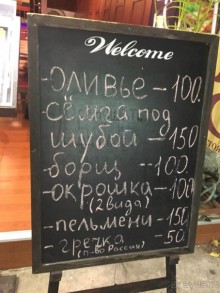 Welcome
-ОЛИВЬЕ -100.
-СЁМГА ПОД
ШУБОЙ -150
-борщ --100
-окрошка -100
(2 вида)
-пельмени -150
-гречка - 50.
(п-во Россия)